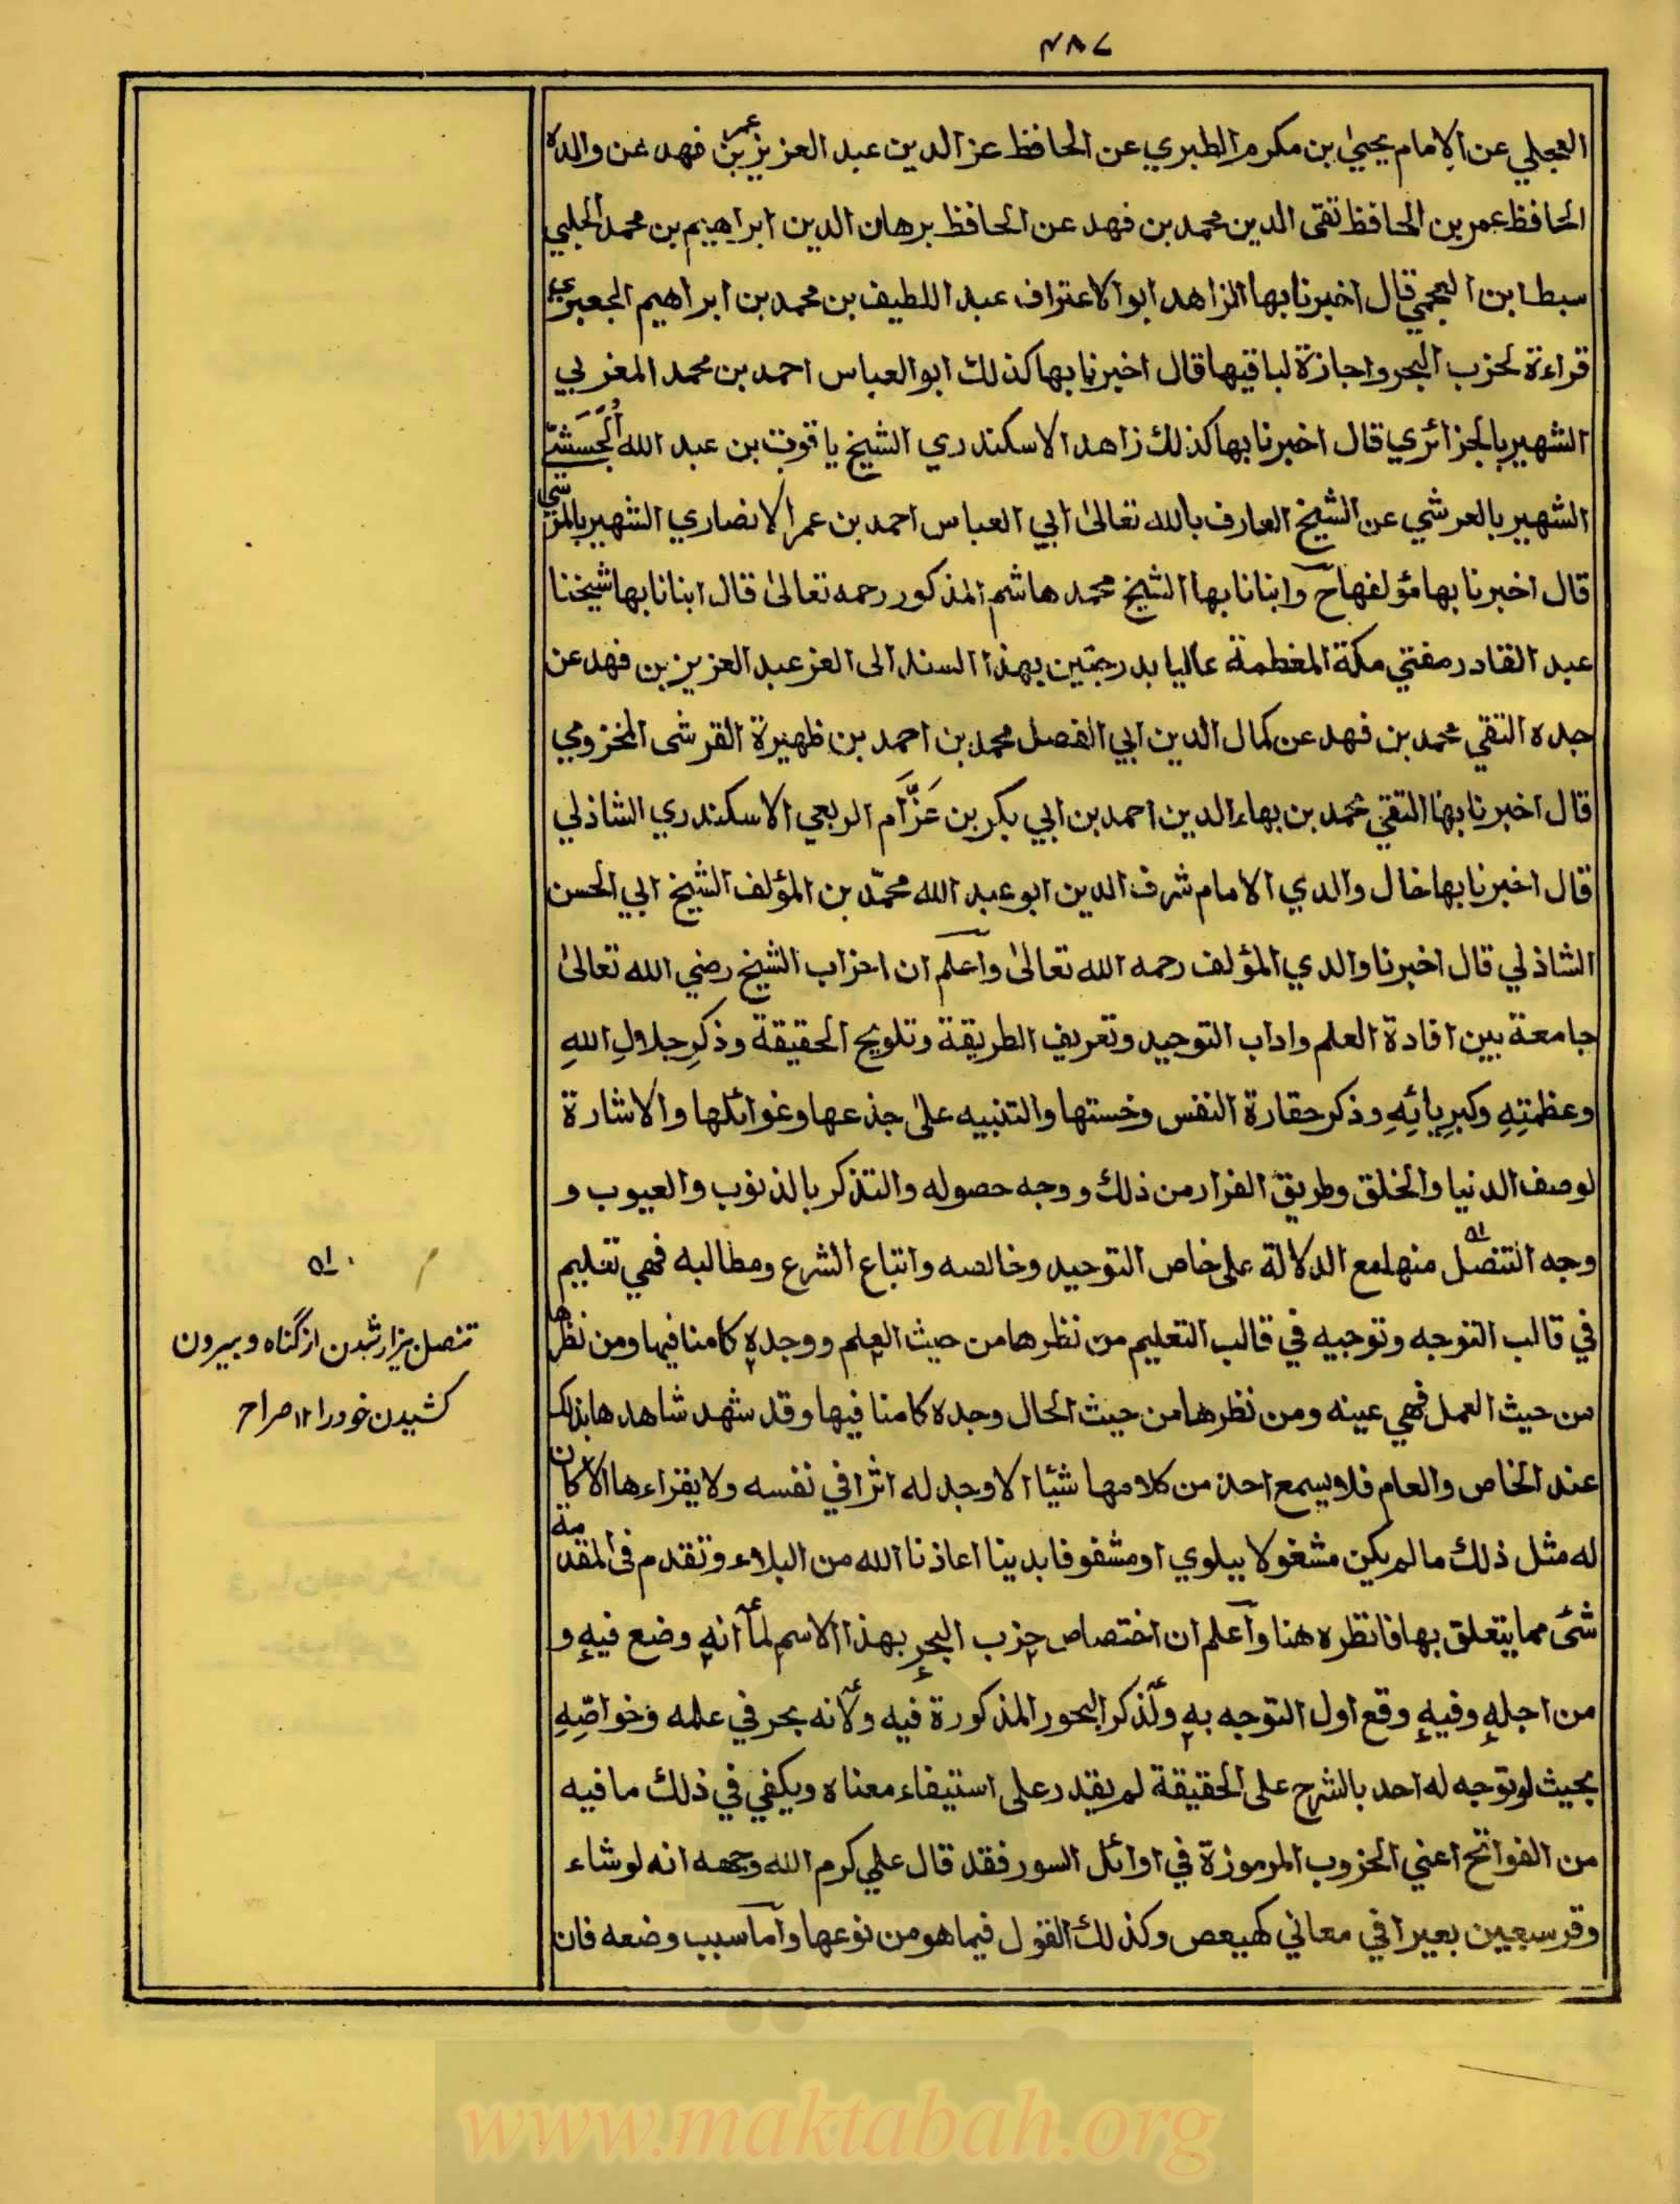 ٤٨٧
العجلي عن الامام يحيىٰ بن مكرم الطبري عن الحافظ عز الدين عبد العزيز بن عمر بن فهد عن والده
الحافظ عمر بن الحافظ تقى الدين محمد بن فهد عن الحافظ برهان الدين ابراهيم بن محمد الحلبي
سبط ابن العجمي قال اخبرنا بها الزاهد ابو الاعتراف عبد اللطيف بن محمد بن ابراهيم الجعبري
قراءة لحزب البحر واجازة لباقيها قال اخبرنا بها كذلك ابو العباس احمد بن محمد المغربي
الشهير بالجزائري قال اخبرنا بها كذلك زاهد الاسكندري الشيخ ياقوت بن عبد الله
الشهير بالعرشي عن الشيخ العارف بالله تعالىٰ ابي العباس احمد بن عمر الانصاري الشهير بالمرسي
قال اخبرنا بها مؤلفها ح وانبانا بها الشيخ محمد هاشم المذكور رحمه تعالىٰ قال انبانا بها شيخنا
عبد القادر مفتي مكة المعظمة عاليا بدرجتين بهذا السند الى العز عبد العزيز بن فهد عن
جده التقي محمد بن فهد عن كمال الدين ابي الفضل محمد بن احمد بن ظهيرة القرشى المخزومي
قال اخبرنا بها التقي محمد بن بهاء الدين احمد بن ابي بكر بن عَزَّام الربعي الاسكندري الشاذلي
قال اخبرنا بها خال والدي الامام شرف الدين ابو عبد الله محمّد بن المؤلف الشيخ ابي الحسن
الشاذلي قال اخبرنا والدي المؤلف رحمه الله تعالىٰ واعلم ان احزاب الشيخ رضي الله تعالىٰ
جامعة بين افادة العلم واداب التوحيد وتعريف الطريقة وتلويح الحقيقة وذكرِ جلالِ اللهِ
وعظمتِهِ وكبرِيائِهِ وذكر حقارة النفس وخستها والتنبيه علىٰ جذعها وغوائلها والاشارة
لوصف الدنيا والخلق وطريق الفرار من ذلك ووجه حصوله والتذكر بالذنوب والعيوب و
وجه التنصل منها مع الدلالة على خاص التوحيد وخالصه واتباع الشرع ومطالبه فهي تعليم
في قالب التوجه وتوجيه في قالب التعليم من نظرها من حيث العلم ووجده كامنا فيها ومن نظرها
من حيث العمل فهي عينه ومن نظرها من حيث الحال وجده كامنا فيها وقد شهد شاهدها بذلك
عند الخاص والعام فلا يسمع احد من كلامها شيئا الا وجد له اثرا في نفسه ولا يقراءها الا كان
له مثل ذلك ما لم يكن مشغولا ببلوي او مشفوفا بدينا اعاذنا الله من البلاء وتقدم فى المقدمة
شئ مما يتعلق بها فانظره هنا واعلم ان اختصاص حزب البحر بهذا الاسم لما انه وضع فيه و
من اجله وفيه وقع اول التوجه به ولذكر البحور المذكورة فيه ولانه بحر في علمه وخواصِّهِ
بحيث لو توجه له احد بالشرح على الحقيقة لم يقدر على استيفاء معناه ويكفي في ذلك ما فيه
من الفواتح اعني الحروب المرموزة في اوائل السور فقد قال علي كرم الله وجهه انه لو شاء
وقر سبعين بعيرا في معاني كهيعص وكذلك القول فيما هو من نوعها واما سبب وضعه فان
تنصل بيزار شدن از گناه و بيرون
كشيدن خود را ۱۲ صراح
www.maktabah.org